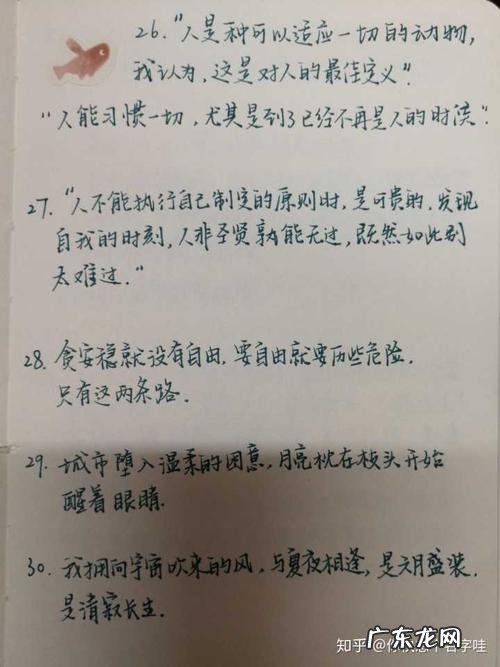 26. "人是种可以适应一切的动物,
我认为,这是对人的最佳定义".
"人能习惯一切,尤其是到了已经不再是人的时候".
27. "人不能执行自己制定的原则时,是可贵的,发现
自我的时刻,人非圣贤孰能无过,既然如此别
太难过."
28. 贪安稳就没有自由,要自由就要历些危险.
只有这两条路.
29. 城市堕入温柔的困意,月亮枕在枝头开始
醒着眼睛.
30. 我拥向宇宙吹来的风,与夏夜相逢,是六月盛装.
是清寂长生.
知乎
广东龙网